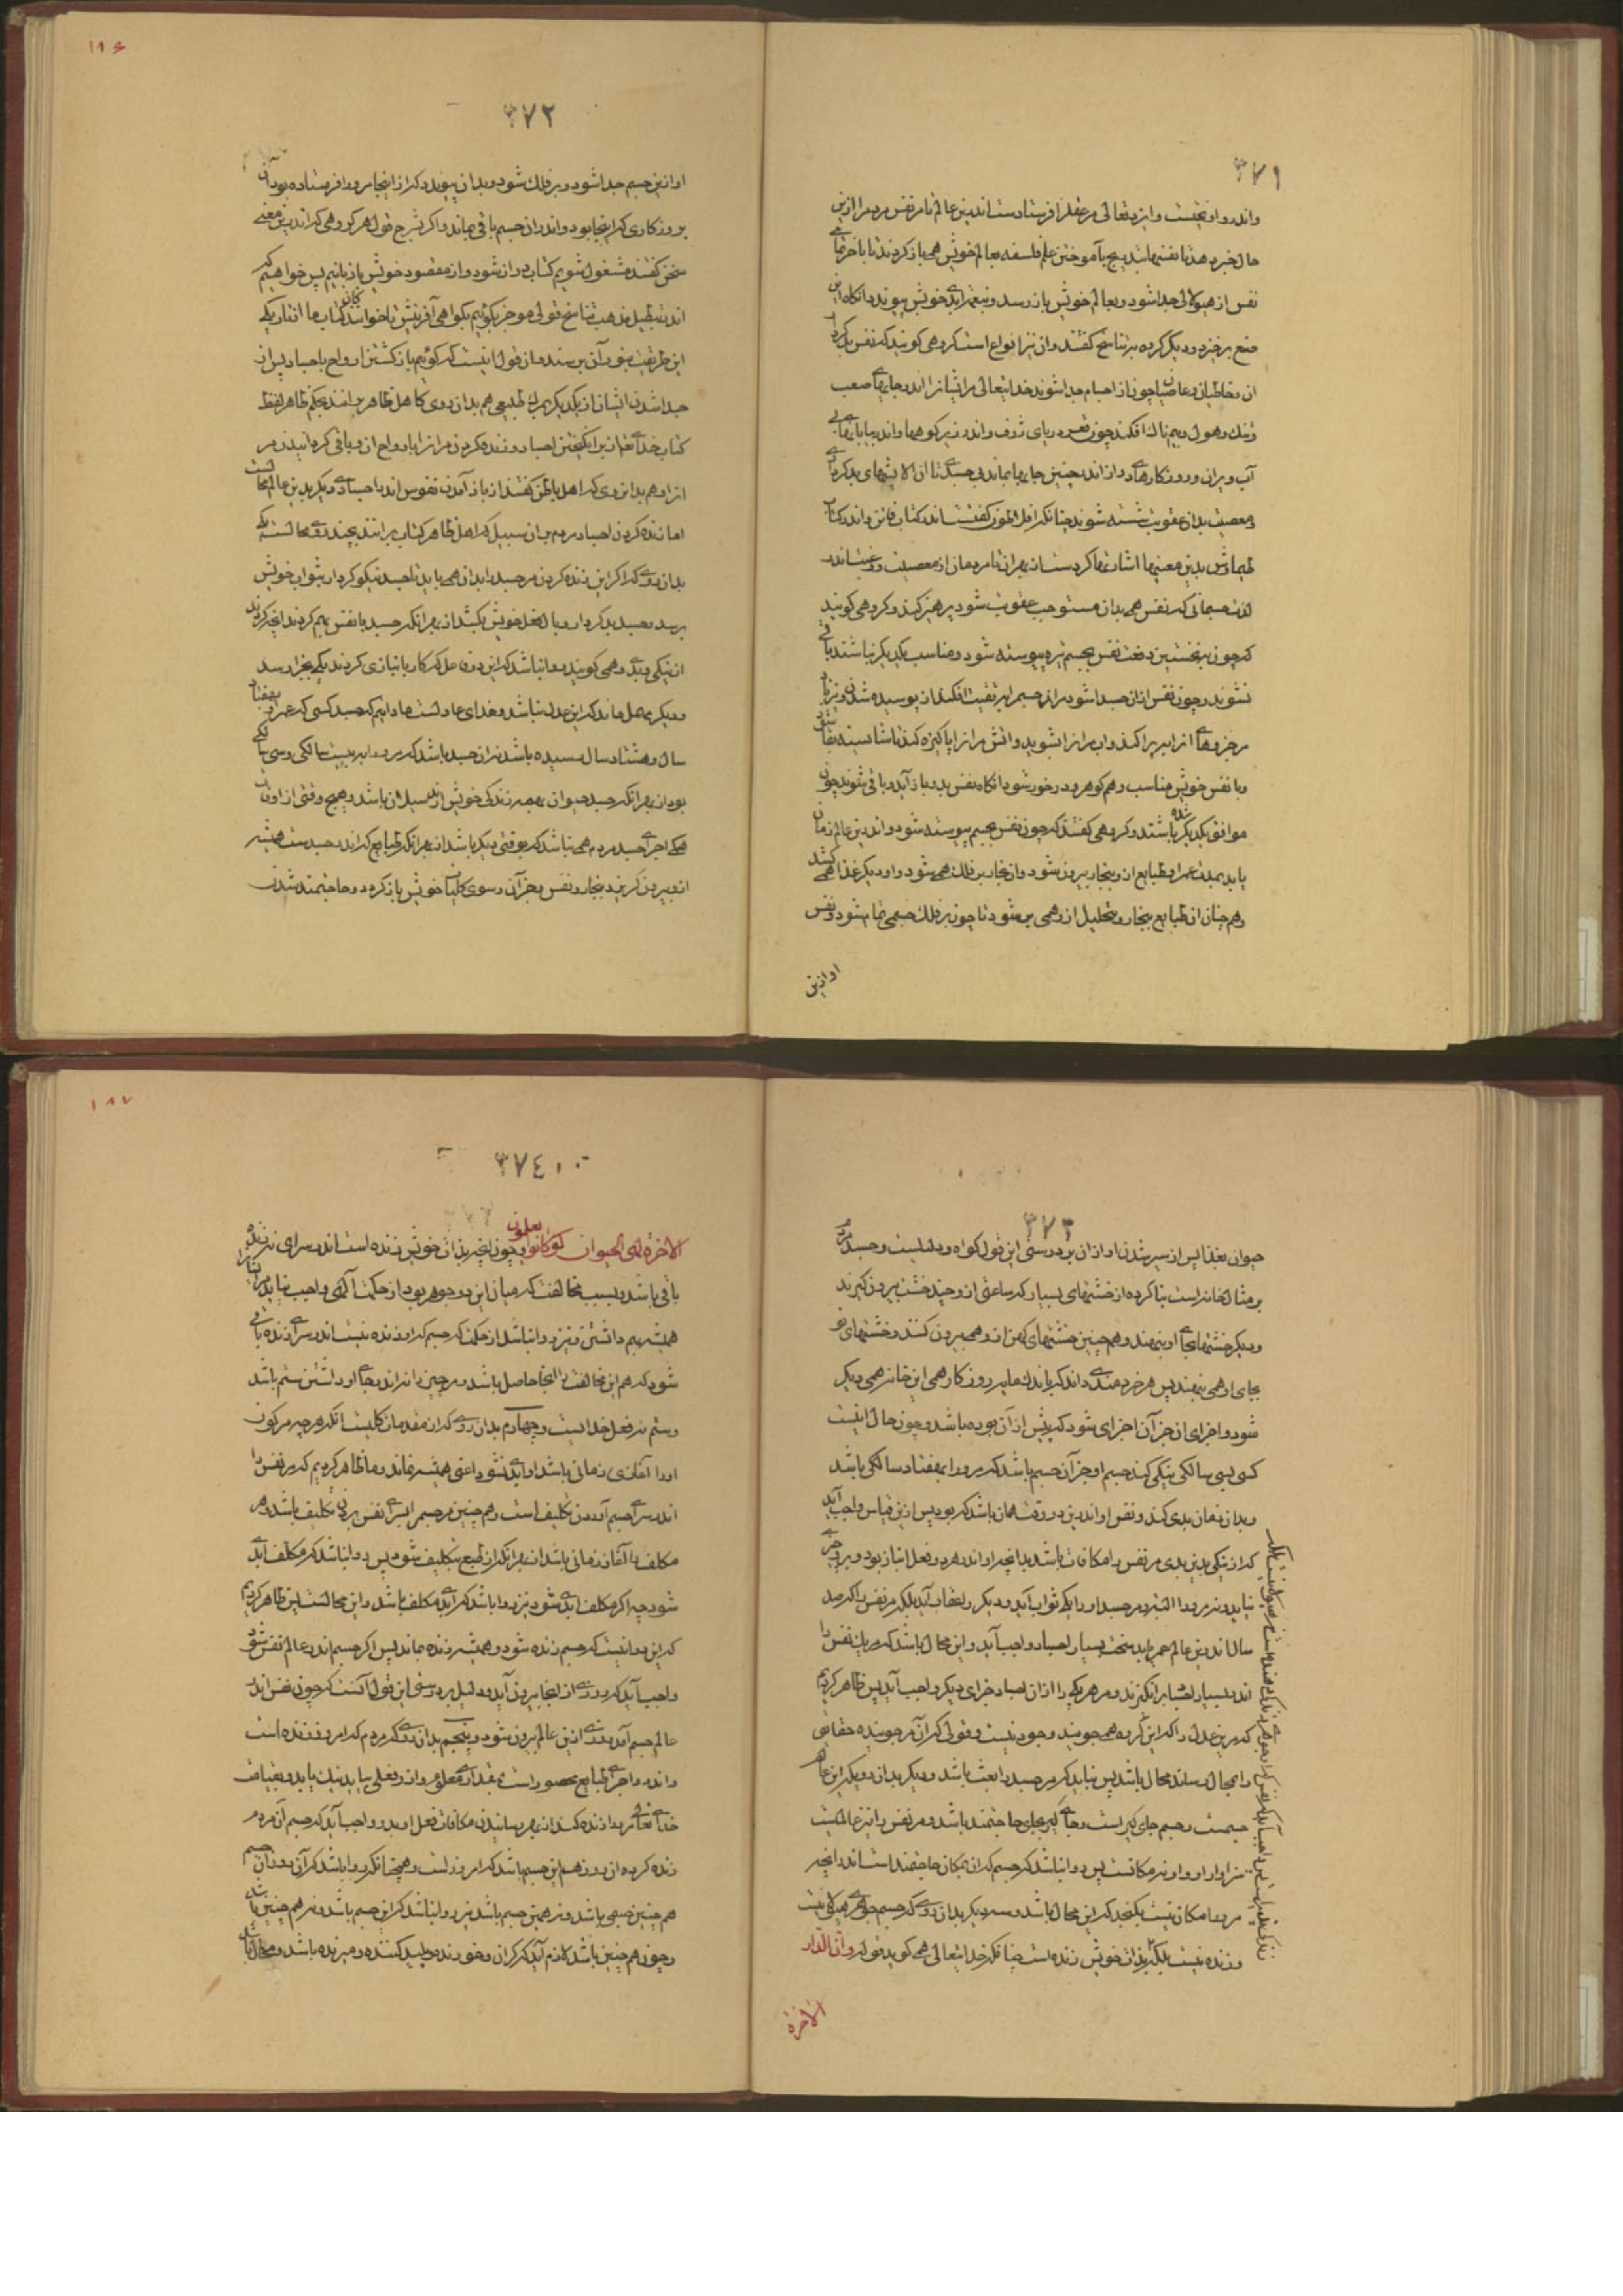 ۳۷۱
واندرو آویخته است وایزد تعالی مر عقل را فرستادست اندرین عالم تا مر نفس مردم را ازین
حال خبر دهد تا نفسها بسیج بآموختن علم فلسفه بعالم خویش همی باز گردند تا باخر همه
نفس از هیولی جدا شود و بعالم خویش باز رسد و بنعمت ابدی خویش پیوندد آنگاه این
صنع برخیزد و دیگر گروه بر تناسخ گفتند وان نیز انواع است گروهی گویند که نفس بدکردار
ان وخاطیان وعاصیان چون از اجسام جدا شوند خدایتعالی مر ایشان را اندر جایهای صعب
وتنک وهول وبیم ناک افکند چون قعر دریای ژرف واندر زیر کوهها واندر بیابانهای بی
آب ویران وروزکارهای دراز اندر چنین جایها بماند بی جسدی تا از ان الایشهای بدکرداری
ومعصیت بدان عقوبت شسته شوند چنانکه افلاطون گفتست اندر کتاب فاذن واندر کتاب
طیماوش بدین معنیها اشارتها کردست از بهر ان تا مردمان از معصیت ورغبت اندر
لذت جسمانی که نفس همی بدان مستوجب عقوبت شود پرهیز کنند وگروهی گویند
که چون بر نخستین دفعت نفس بجسم تیره پیوسته شود ومناسب یکدیگر نباشند باقی
نشوند وچون نفس از ان جسد جدا شود مر ان جسم را بر نفیت افکند از پوسیده شدن ونیز باد
مر جزوهای انرا بپراکند واب مر انرا بشوید واتش مر انرا پاکیزه کند تا شایسته بقا شود
وبا نفس خویش مناسب وهم کوهر ودر خور شود انکاه نفس بدو باز آید وباقی شوند چون
موافق یکدیگر شده باشند وگروهی گفتند که چون نفس بجسم پیوسته شود واندرین عالم زمان
یابد بمدت عمر او طبایع ازو ببخار بیرون شود وان بخار بر فلک همی شود واو دیگر غذا همی کشد
وهم چنان از طبایع ببخار وتحلیل ازو همی بر شود تا چون بر فلک جسمی تمام شود ونفس
او ازین
۱۸۶
۳۷۲
او ازین جسم جدا شود وبر فلک شود وبدان پیوندد که از اینجا مرورا فرستاده بود آن
بروزکاری که اینجا بود واندر ان جسم باقی بماند واکر بشرح قول هر گروهی که اندرین معنی
سخن گفتند مشغول شویم کتاب دراز شود واز مقصود خویش باز مانیم پس خواهیم که
اندر تبطیل مذهب تناسخ قولی موجز بگوئیم بگواهی آفرینش تا خوانندگان کتاب ما اندر یکی
این طریقت بنور آن برسند وان قول اینست که گوئیم باز گشتن ارواح باجساد پس از
جدا شدن ایشان از یکدیگر بمرک طبیعی هم بدان روی که اهل ظاهر برانند بحکم ظاهر لفظ
کتاب خدای تعالی از بر انگیختن اجساد وزنده کردن مر انرا بارواح ان وباقی گردانیدن مر
انرا وهم بدان روی که اهل باطن گفتند از باز آمدن نفوس اندر اجسادی دیگر بدین عالم محالست
اما زنده کردن اجساد مردم بدان سبیل که اهل ظاهر کتاب برانند بچند روی محالست یکی
بدان روی که اکر این زنده کردن مر جسد را بدان همی باید تا جسد نیکو کردار بثواب خویش
برسد وجسد بدکردار وبال فعل خویش بکشد از بهر انکه جسد با نفس بهم کردند انچه کردند
از نیکی وبدی وهمی گویند روا نباشد که این دو تن عمل که کار بانبازی کردند یکی بجزا رسد
ودیکر مهمل ماند که این عدل نباشد وخدای عادلست ما دانیم که جسد کسی که عمر او بهفتاد
سال وهشتاد سال رسیده باشد نه ان جسد باشد که مر ورا به بیست سالگی وسی سالگی
بود از بهر انکه جسد حیوان همه زندگی خویش اندر سیلان باشد وهیچ وقتی از اوقات
همگی اجزای جسد مردم همی نباشد که بوقتی دیگر باشد از بهر انکه طبایع که اندر جسدست همیشه
ازو بیرون گریزد ببخار ونفس وجز آن وسوی کلیات خویش باز گردد وحاجتمند شدن
۳۷۳
حیوان بغذا پس از سیر شدن او از ان بر درستی این قول گواه ودلیلست وجسد مردم
بر مثال خانه است بنا کرده از خشتهای بسیار که ساعتی ازو چند خشت بیرون گیرند
ودیگر خشتها بجای او بنهند وهم چنین خشتهای کهن ازو همی بیرون کنند وخشتهای نو
بجای او همی بنهند پس هر خردمندی داند که باندک مایه روزکار همی این خانه همی دیگر
شود واجزای ان جز آن اجزای شود که پیش از آن بوده باشد وچون حال اینست
کسی بسی سالگی نیکی کند جسم او جز آن جسم باشد که مر ورا بهفتاد سالگی باشد
وبدان زمان بدی کند ونفس او اندرین دو وقت همان باشد که بود پس ازین قیاس واجب آید
که از نیکی بدین بدی مر نفس را مکافات باشد بدانچه او اندر هر دو فعل انباز بود
نیاید ونه مر ورا البته ومر جسد او را یکی ثواب آید ودیگر را عقاب آید بلکه مر نفس را که صد
سال اندرین عالم عمر یابد سخت بسیار اجساد واجب آید واین محال باشد که مر یک نفس را
اندر بسیار اجساد برانگیزند ومر هر یکی را از ان اجساد جزای دیگر واجب آید پس ظاهر کردیم
که مر این عدل را که این گروه همی جویند وجود نیست وقولی که آن مر جوینده حقایق
را بمحال رساند محال باشد پس نباید که مر جسد را بعث باشد ودیگر بدان روی که این عالم
جسمست وجسم جای گیر است وجای گیر بجای حاجتمند باشد ومر نفس را نیز عالمیست
سزاوار او واو نه مکانست پس روا نباشد که جسم که ان بمکان حاجتمند است اندر انچه
مر ورا مکان نیست بگنجد که این محال باشد وسدیگر بدان روی که جسم جوهری هیولانیست
وزنده نیست بلکه بذات خویش زنده است چنانکه خدایتعالی همی گوید قوله وان الدار
الآخرة
۱۸۷
۳۷۴
الآخرة لهی الحیوان لو کانوا یعلمون وچون انچه بذات خویش زنده است اندر سرای زنده
باقی باشد وبسبب مخالفت که میان این دو جوهر بود از حکمت الهی واجب نیاید مر ایشان را
همیشه بهم داشتن ونیز روا نباشد از حکمت که جسم که او زنده نیست اندر سرای زنده باقی
شود که هم این مخالفت را آنجا حاصل باشد ومر چیزی را نه اندر جای او داشتن ستم باشد
وستم نه فعل خدایست وچهارم بدان روی که از مقدمات کلیست انکه هر چه مر کون
او را آغازی زمانی باشد او ابدی نشود اعنی همیشه نماند وما ظاهر کردیم که مر نفس را
اندر سرای جسم آوردن تکلیف است وهم چنین مر جسم را بسرای نفس بردن تکلیف باشد وهر
مکلف را آغاز زمانی باشد از بهر انکه از طبع بتکلیف شود پس روا نباشد که مکلف ابدی
شود چه اکر مکلف ابدی شود نیز روا باشد که ابدی مکلف باشد واین محالست پس ظاهر کردیم
که این روا نیست که جسم زنده شود وهمیشه زنده بماند پس اکر جسم اندر عالم نفس شود
واجب آید که روزی از انجا بیرون آید ودلیل بر درستی این قول آنست که چون نفس اندر
عالم جسم آمد روزی ازین عالم بیرون شود وپنجم بدان روی که مردم که امروز زنده است
واندرو اجزای طبایع محصور است بمقداری معلوم وازو فعلی بیاید نیک یا بد وبقیامت
خدای تعالی مر ورا زنده کند از بهر رسانیدن مکافات فعل او بدو واجب آید که جسم آن مردم
زنده کرده ان روز هم این جسم باشد که امروز است وهمچنانکه روا باشد که آن روز ان جسم
هم چنین جسمی باشد ونه همین جسم باشد نیز روا نباشد که این جسم باشد ونه هم چنین باشد
وچون هم چنین باشد لازم آید که گران وخورنده وپلید کننده ومیرنده باشد ومحال باشد